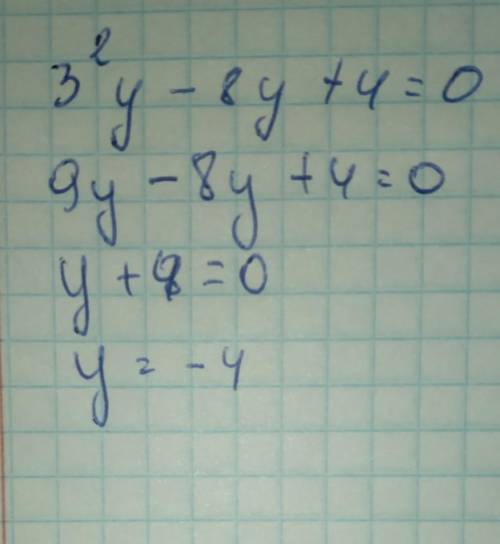 3²y - 8y + 4 = 0
9y - 8y + 4 = 0
y + 4 = 0
y = - 4